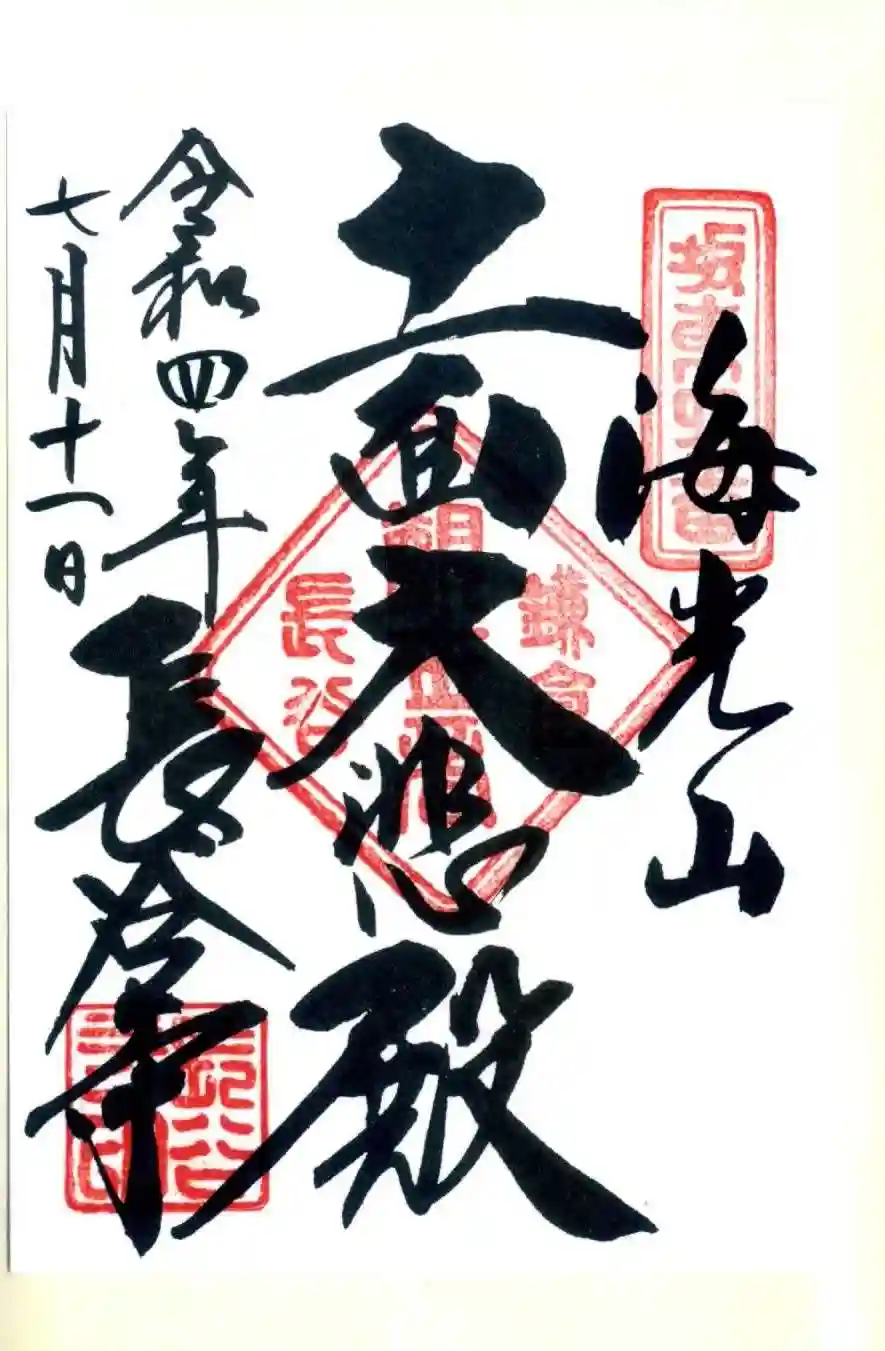 海光山
十一面大悲殿
長谷寺
令和四年
七月十一日
坂東第四番
鎌倉
長谷